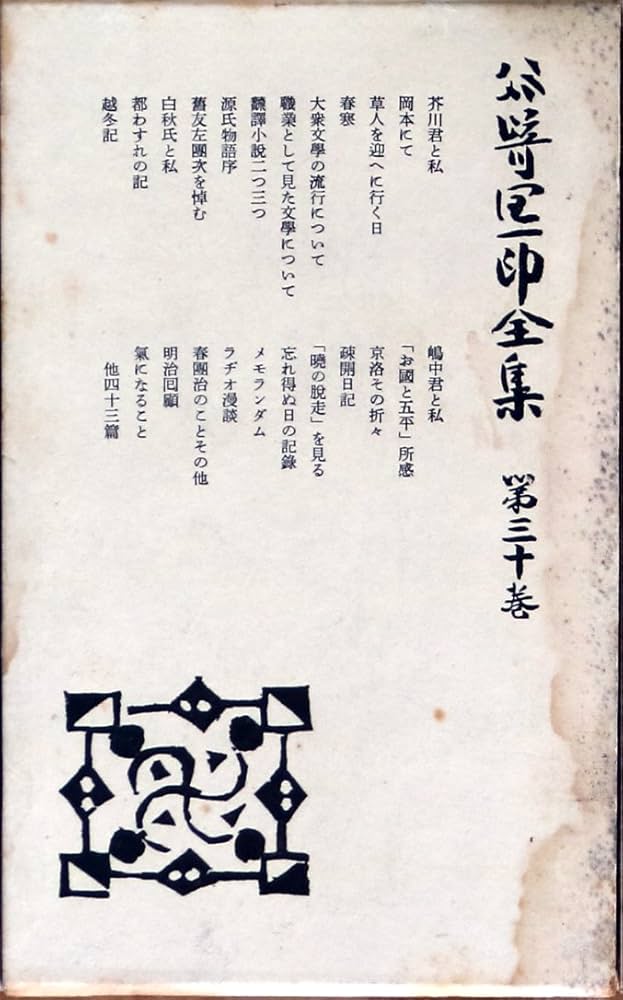 谷崎潤一郎全集 第三十巻
芥川君と私
岡本にて
草人を迎へに行く日
春寒
大衆文學の流行について
職業として見た文學について
飜譯小説二つ三つ
源氏物語序
舊友左團次を悼む
白秋氏と私
都わすれの記
越冬記
嶋中君と私
「お國と五平」所感
京洛その折々
疎開日記
「曉の脫走」を見る
忘れ得ぬ日の記錄
メモランダム
ラヂオ漫談
春團治のことその他
明治回顧
氣になること
他四十三篇